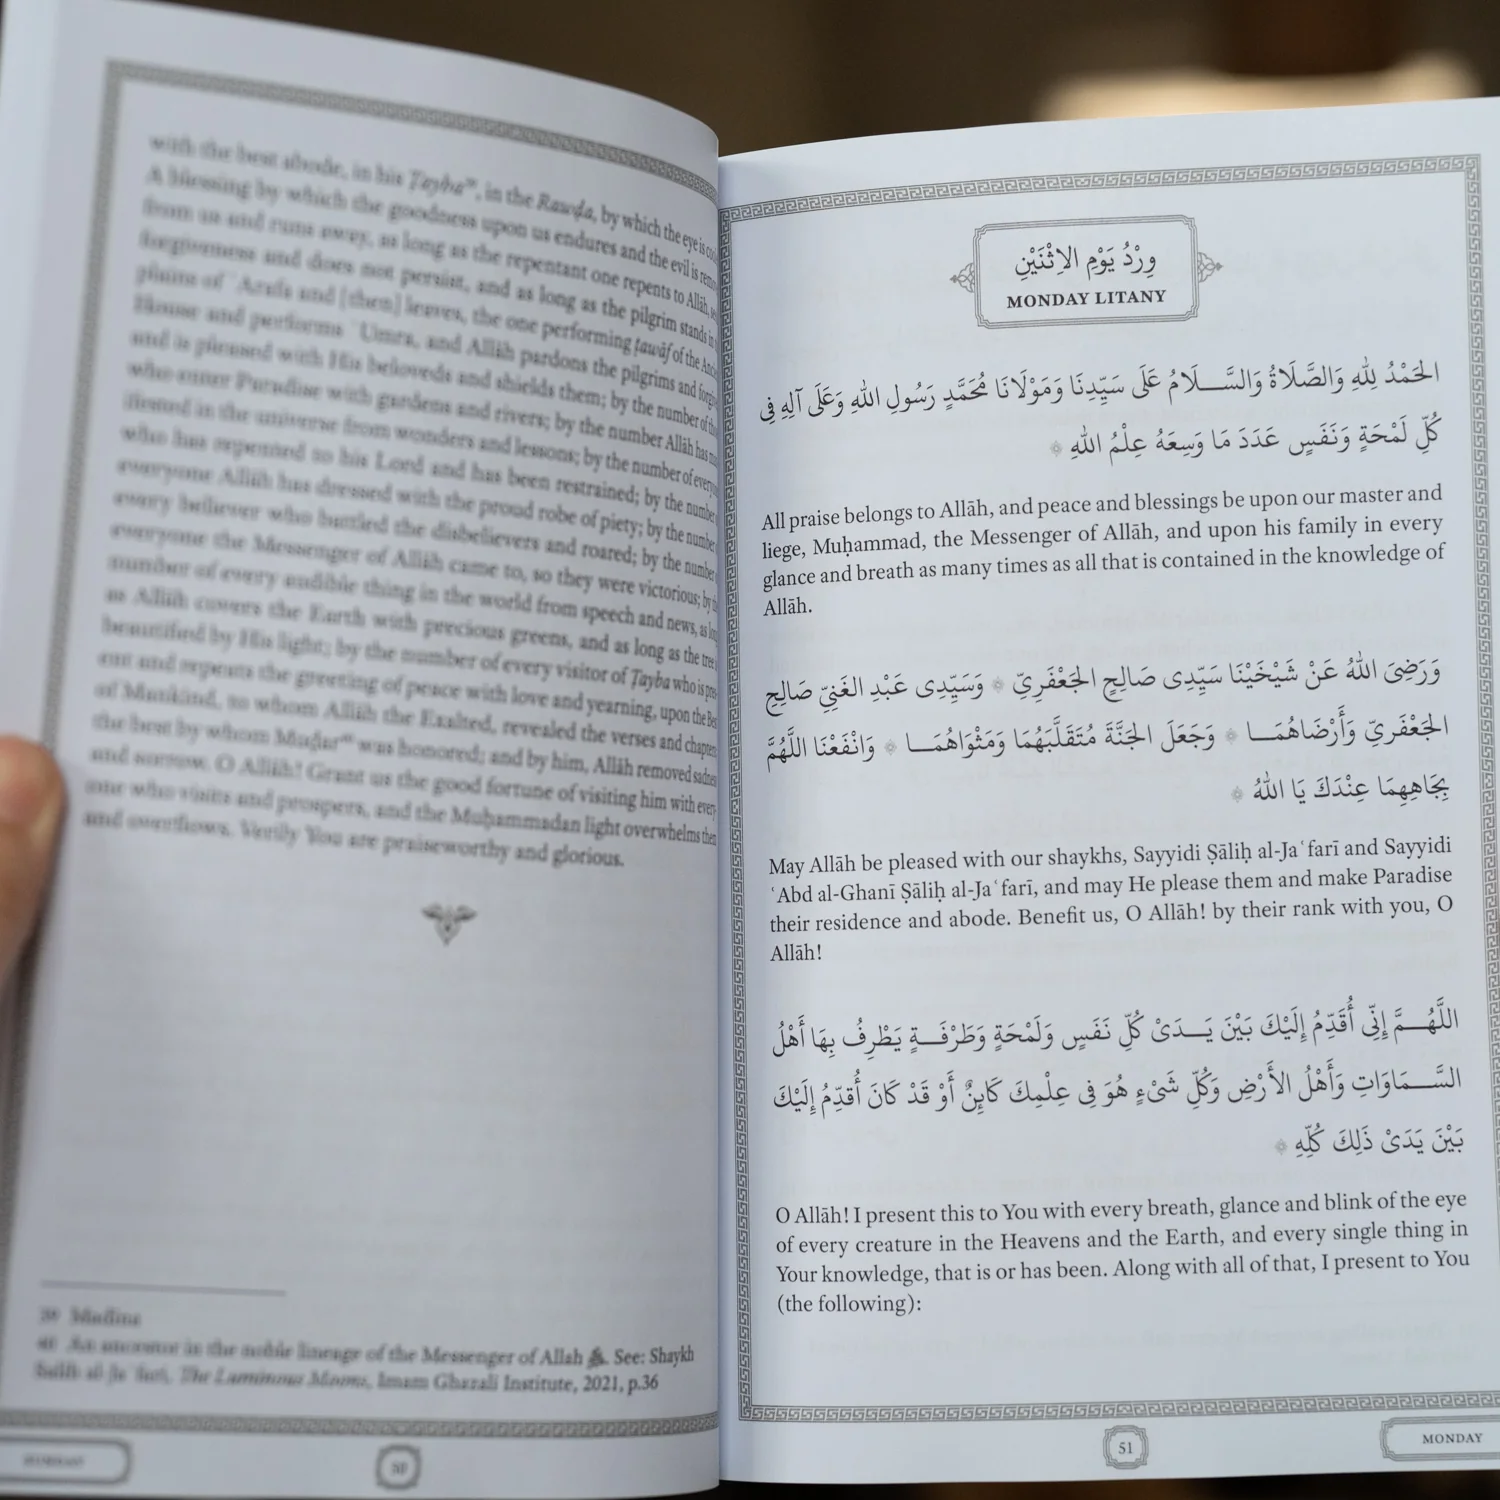 with the best abode, in his Ṭayba³⁹, in the Rawḍa, by which the eye is
A blessing by which the goodness upon us endures and the evil is
from us and runs away, as long as the repentant one repents to Allāh,
forgiveness and does not persist, and as long as the pilgrim stands in
plains of ʿArafa and [then] leaves, the one performing ṭawāf of the
House and performs ʿUmra, and Allāh pardons the pilgrims and
and is pleased with His beloveds and shields them; by the number of
who enter Paradise with gardens and rivers; by the number Allāh has
in the universe from wonders and lessons; by the number of
who has repented to his Lord and has been restrained; by the number
everyone Allāh has dressed with the proud robe of piety; by the number
every believer who battled the disbelievers and roared; by the number
everyone the Messenger of Allāh came to, so they were victorious; by
number of every audible thing in the world from speech and news, as
as Allāh covers the Earth with precious greens, and as long as the
beautified by His light; by the number of every visitor of Ṭayba who is
and repeats the greeting of peace with love and yearning, upon the Best
of Mankind, to whom Allāh the Exalted, revealed the verses and
the best by whom Muḍar⁴⁰ was honored; and by him, Allāh removed
and sorrow. O Allāh! Grant us the good fortune of visiting him with
one who visits and prospers, and the Muḥammadan light overwhelms
and overflows. Verily You are praiseworthy and glorious.
39 Madina
40 An ancestor in the noble lineage of the Messenger of Allah ﷺ. See: Shaykh
Salih al-Jaʿfari, The Luminous Moons, Imam Ghazali Institute, 2021, p.36
50
وِرْدُ يَوْمِ الاِثْنَيْنِ
MONDAY LITANY
الحَمْدُ لِلهِ وَالصَّلَاةُ وَالسَّـلَامُ عَلَى سَيِّدِنَا وَمَوْلَانَا مُحَمَّدٍ رَسُولِ اللهِ وَعَلَى آلِهِ فِى
كُلِّ لَمْحَةٍ وَنَفَسٍ عَدَدَ مَا وَسِعَهُ عِلْمُ اللهِ ۞
All praise belongs to Allāh, and peace and blessings be upon our master and
liege, Muḥammad, the Messenger of Allāh, and upon his family in every
glance and breath as many times as all that is contained in the knowledge of
Allāh.
وَرَضِىَ اللهُ عَنْ شَيْخَيْنَا سَيِّدِى صَالِحٍ الجَعْفَرِيّ ۞ وَسَيِّدِى عَبْدِ الغَنِيِّ صَالِحٍ
الجَعْفَرِيّ وَأَرْضَاهُمَـا ۞ وَجَعَلَ الجَنَّةَ مُتَقَلَّبَهُمَا وَمَثْوَاهُمَـا ۞ وَانْفَعْنَا اللَّهُمَّ
بِجَاهِهِمَا عِنْدَكَ يَا اللهُ ۞
May Allāh be pleased with our shaykhs, Sayyidi Ṣāliḥ al-Jaʿfarī and Sayyidi
ʿAbd al-Ghanī Ṣāliḥ al-Jaʿfarī, and may He please them and make Paradise
their residence and abode. Benefit us, O Allāh! by their rank with you, O
Allāh!
اللَّهُـمَّ إِنِّى أُقَدِّمُ إِلَيْكَ بَيْنَ يَـدَىْ كُلِّ نَفَسٍ وَلَمْحَةٍ وَطَرْفَـةٍ يَطْرِفُ بِهَا أَهْلُ
السَّـمَاوَاتِ وَأَهْلُ الأَرْضِ وَكُلِّ شَىْءٍ هُوَ فِى عِلْمِكَ كَائِنٌ أَوْ قَدْ كَانَ أُقدِّمُ إِلَيْكَ
بَيْنَ يَدَىْ ذَلِكَ كُلِّهِ ۞
O Allāh! I present this to You with every breath, glance and blink of the eye
of every creature in the Heavens and the Earth, and every single thing in
Your knowledge, that is or has been. Along with all of that, I present to You
(the following):
51
MONDAY